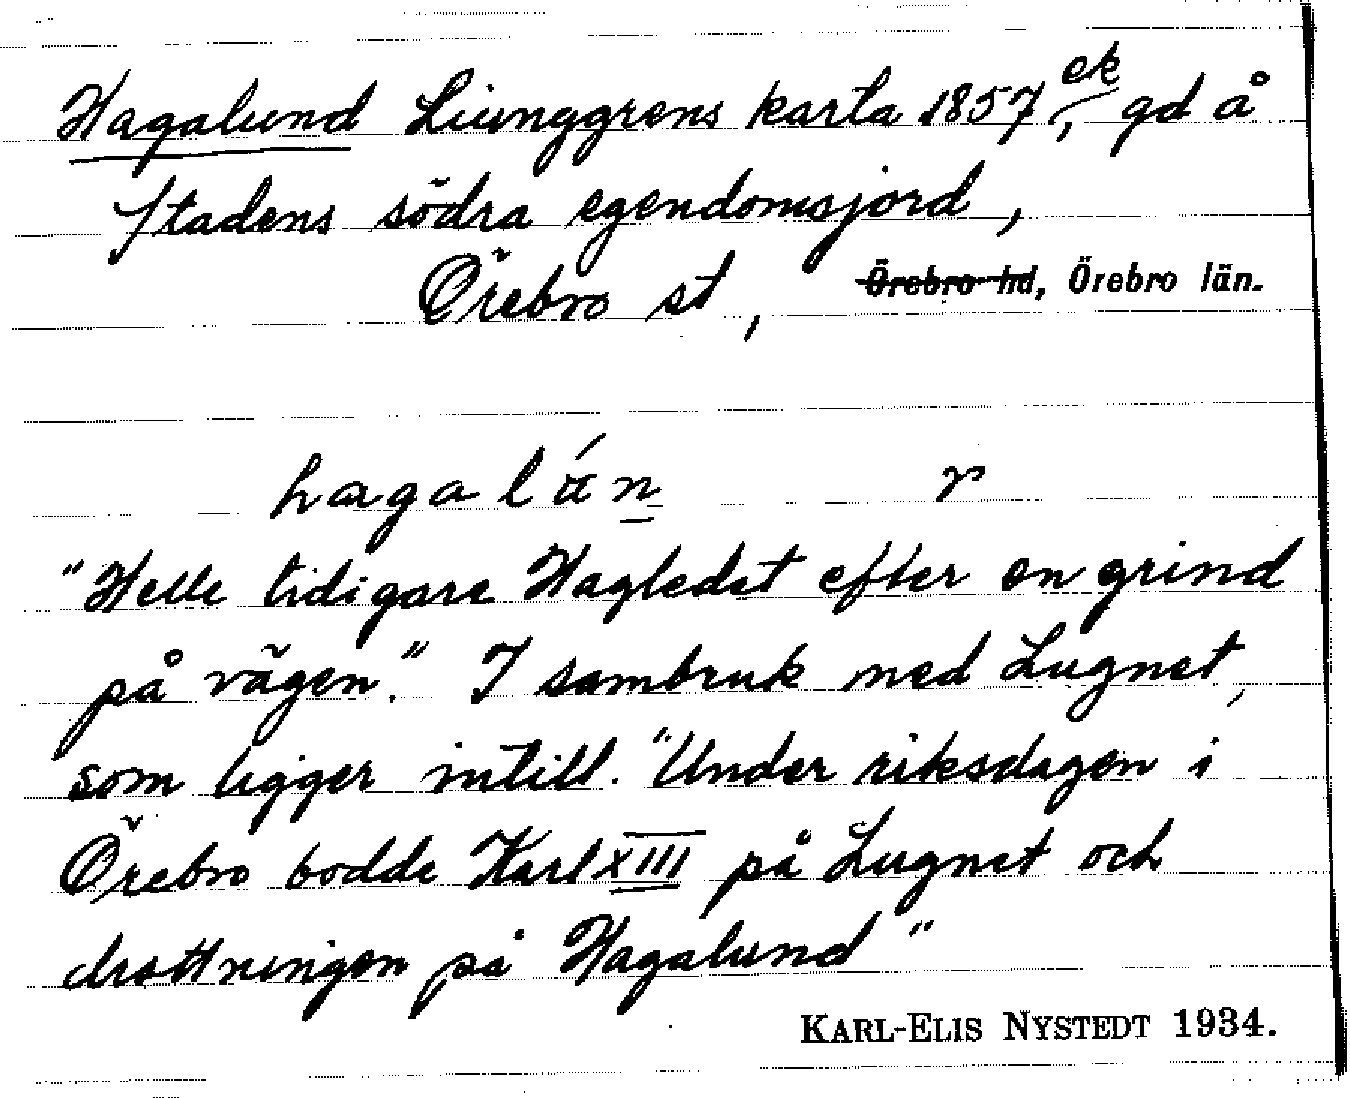 Hagalund Liunggrens karta 1857, ek gd å
stadens södra egendomsjord,
Örebro st, Örebro hd, Örebro län.
hagalú́n r
"Hette tidigare Hagledet efter en grind
på vägen." I sambruk med Lugnet,
som ligger intill. "Under riksdagen i
Örebro bodde Karl XIII på Lugnet och
drottningen på Hagalund"
KARL-ELIS NYSTEDT 1934.